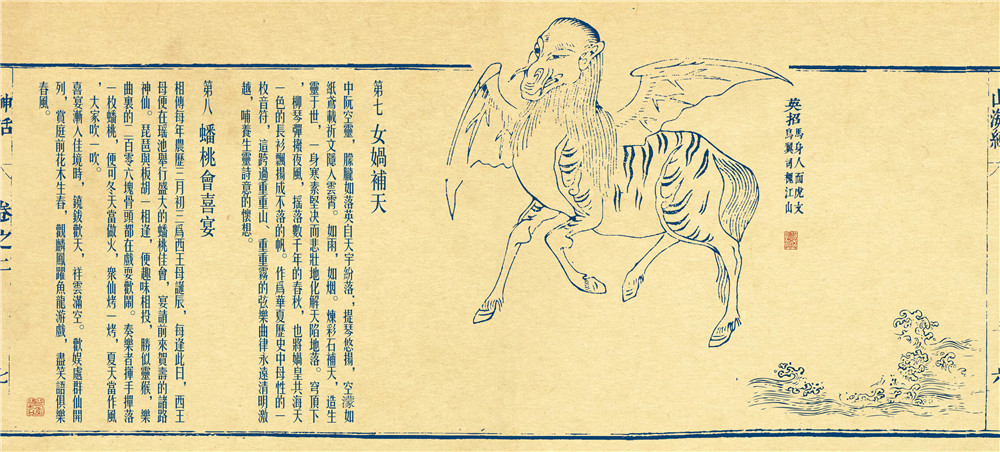 山海經
六
英招
馬身人面虎文
鳥翼司槐江山
第七 女媧補天
中阮空靈，朦朧如落英自天宇紛落；提琴悠揚，空濛如
紙鳶載祈文隱入雲霄。如雨，如烟。煉彩石補天，造生
靈于世，一身寒素堅决而悲壯地化解天陷地落。穹頂下
，柳琴彈撥夜風，摇落數千年的春秋，也將媧皇共海天
一色的長衫飄揚成不落的帆。作爲華夏歷史中母性的一
枚音符，這跨過重重山、重重霧的弦樂曲律永遠清明激
越，哺養生靈詩意的懷想。
第八 蟠桃會喜宴
相傳每年農歷三月初三爲西王母誕辰，每逢此日，西王
母便在瑶池舉行盛大的蟠桃佳會，宴請前來賀壽的諸路
神仙。琵琶與板胡一相逢，便趣味相投，勝似靈猴，樂
曲裏的二百零六塊骨頭都在戲耍歡鬧。奏樂者揮手撣落
一枚蟠桃，便可冬天當做火，衆仙烤一烤，夏天當作風
，大家吹一吹。
喜宴漸入佳境時，鐃鈸歡天，祥雲滿空。歡娱處群仙開
列，賞庭前花木生春，觀麟鳳躍魚龍游戲，盡笑語俱樂
春風。
神話
卷之二
七